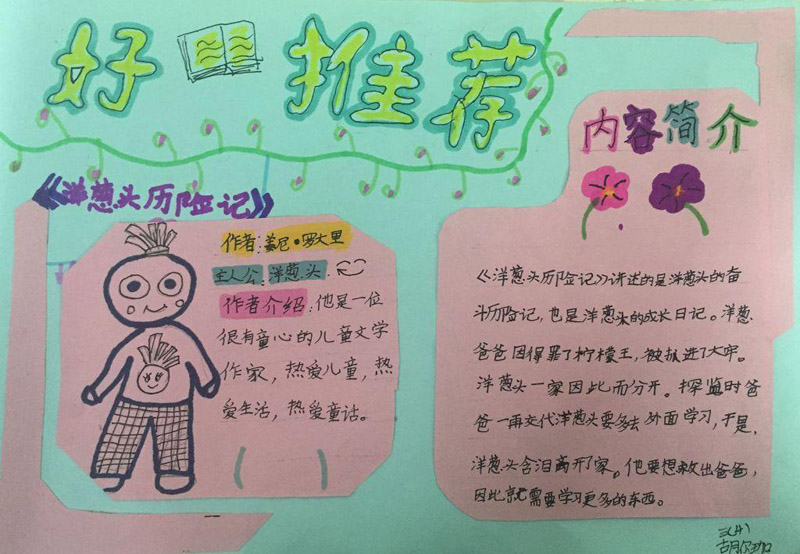 好 推荐
《洋葱头历险记》
作者:姜尼·罗大里
主人公:洋葱头.
作者介绍:他是一位
很有童心的儿童文学
作家,热爱儿童,热
爱生活,热爱童话。
内容简介
《洋葱头历险记》讲述的是洋葱头的奋
斗历险记,也是洋葱头的成长日记。洋葱
爸爸因得罪了柠檬王,被抓进了大牢。
洋葱头一家因此而分开。探监时爸
爸一再交代洋葱头要多去外面学习,于是,
洋葱头含泪离开了家。他要想救出爸爸,
因此就需要学习更多的东西。